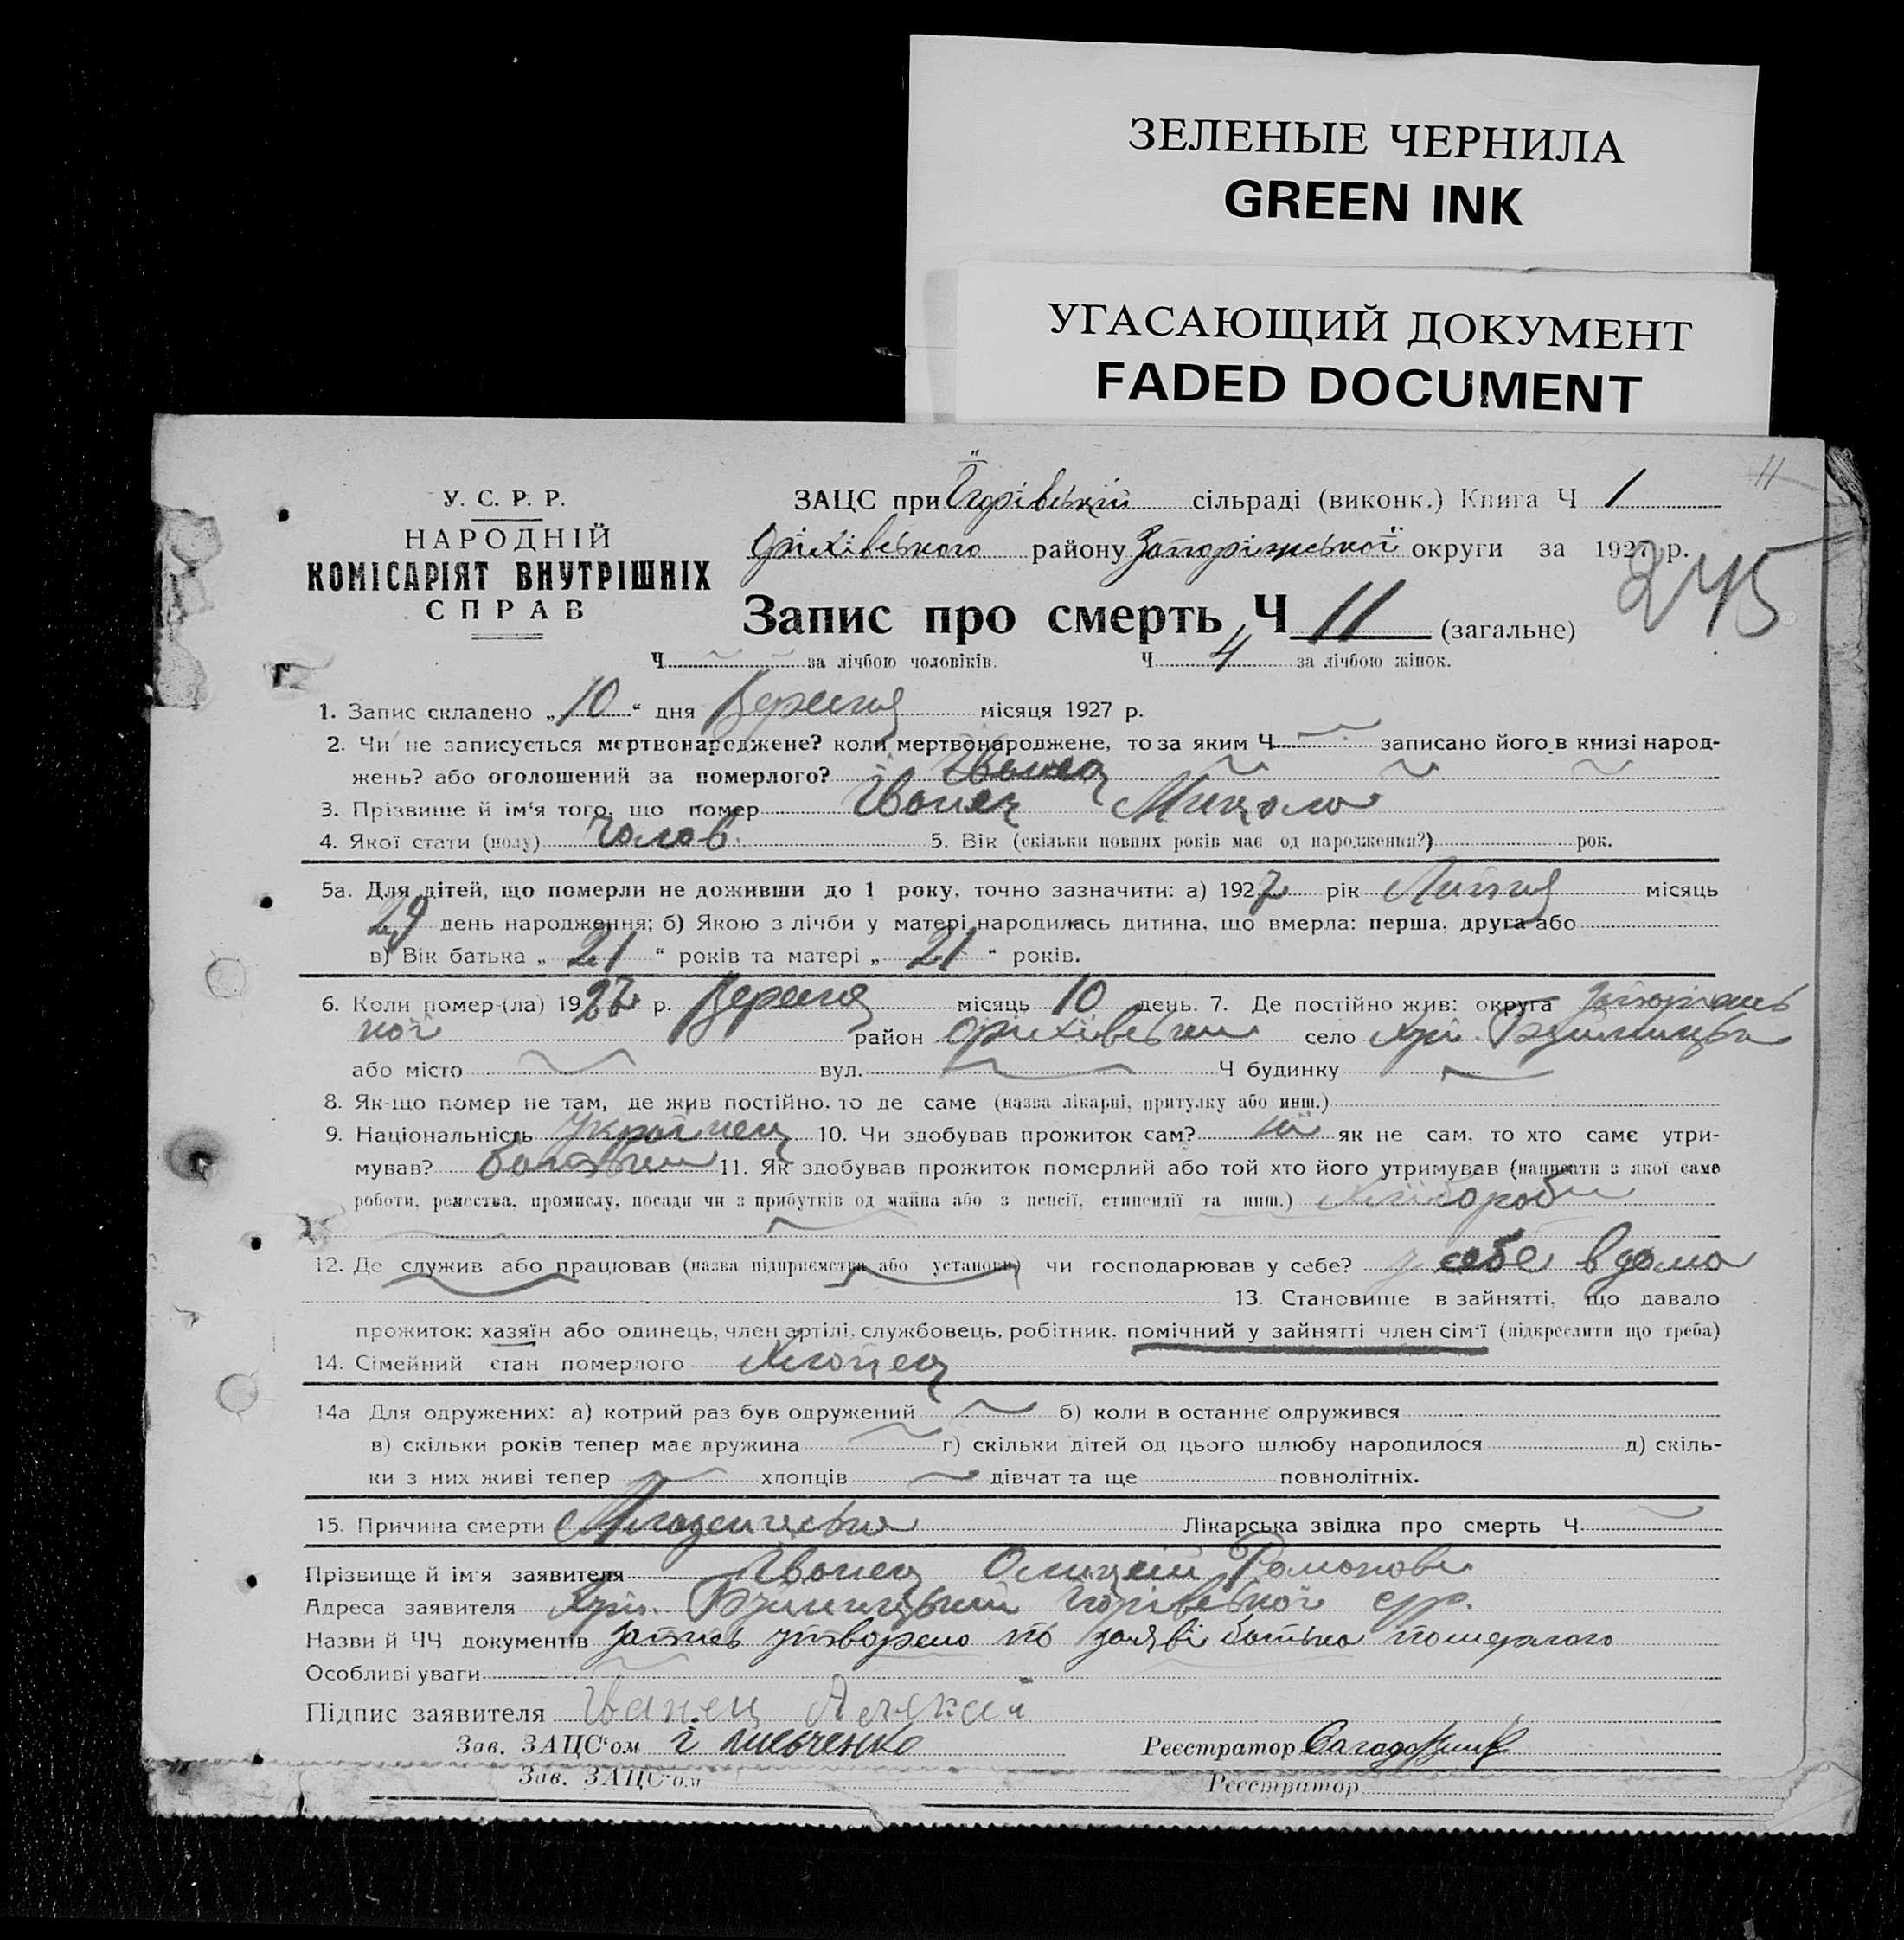 ЗЕЛЕНЫЕ ЧЕРНИЛА
GREEN INK
УГАСАЮЩИЙ ДОКУМЕНТ
FADED DOCUMENT
11
У. С. Р. Р.
НАРОДНІЙ
КОМІСАРІЯТ ВНУТРІШНІХ
СПРАВ
ЗАЦС при сільраді (виконк.) Книга Ч 1
Оріхівського району Запоріжської округи за 1927 р.
245
Запис про смерть Ч 11 (загальне)
Ч за лічбою чоловіків. Ч 4 за лічбою жінок.
1. Запис складено „10“ дня Вересня місяця 1927 р.
2. Чи не записується мертвонароджене? коли мертвонароджене, то за яким Ч записано його в книзі народ-
жень? або оголошений за померлого? Іванец
3. Прізвище й ім'я того, що помер Іванец Микола
4. Якої стати (полу) Чолов. 5. Вік (скільки повних років має од народження?) рок.
5а. Для дітей, що померли не доживши до 1 року, точно зазначити: а) 1927 рік Липня місяць
29 день народження; б) Якою з лічби у матері народилась дитина, що вмерла: перша, друга або
в) Вік батька „21“ років та матері „21“ років.
6. Коли помер-(ла) 1927 р. Вересня місяць 10 день. 7. Де постійно жив: округа Запоріжсь
кої район Оріхівський село хут.
або місто вул. Ч будинку
8. Як-що помер не там, де жив постійно, то де саме (назва лікарні, притулку або инш.)
9. Національність Українец 10. Чи здобував прожиток сам? ні як не сам, то хто саме утри-
мував? батьки 11. Як здобував прожиток померлий або той хто його утримував (написати з якої саме
роботи, ремества, промислу, посади чи з прибутків од майна або з пенсії, стипендії та инш.) Хлібороби
12. Де служив або працював (назва підприємства або установи) чи господарював у себе? у себе вдома
13. Становище в зайнятті, що давало
прожиток: хазяїн або одинець, член артілі, службовець, робітник, помічний у зайнятті член сім'ї (підкреслити що треба)
14. Сімейний стан померлого Хлопец
14а Для одружених: а) котрий раз був одружений б) коли в останнє одружився
в) скільки років тепер має дружина г) скільки дітей од цього шлюбу народилося д) скіль-
ки з них живі тепер хлопців дівчат та ще повнолітніх.
15. Причина смерти Лікарська звідка про смерть Ч
Прізвище й ім'я заявителя Іванец Олицій Романови
Адреса заявителя Хут.
Назви й ЧЧ документів Запись утворено по заяві батька померлого
Особливі уваги
Підпис заявителя Іванец Алексій
Зав. ЗАЦС'ом Реєстратор
Зав. ЗАЦС'ом Реєстратор